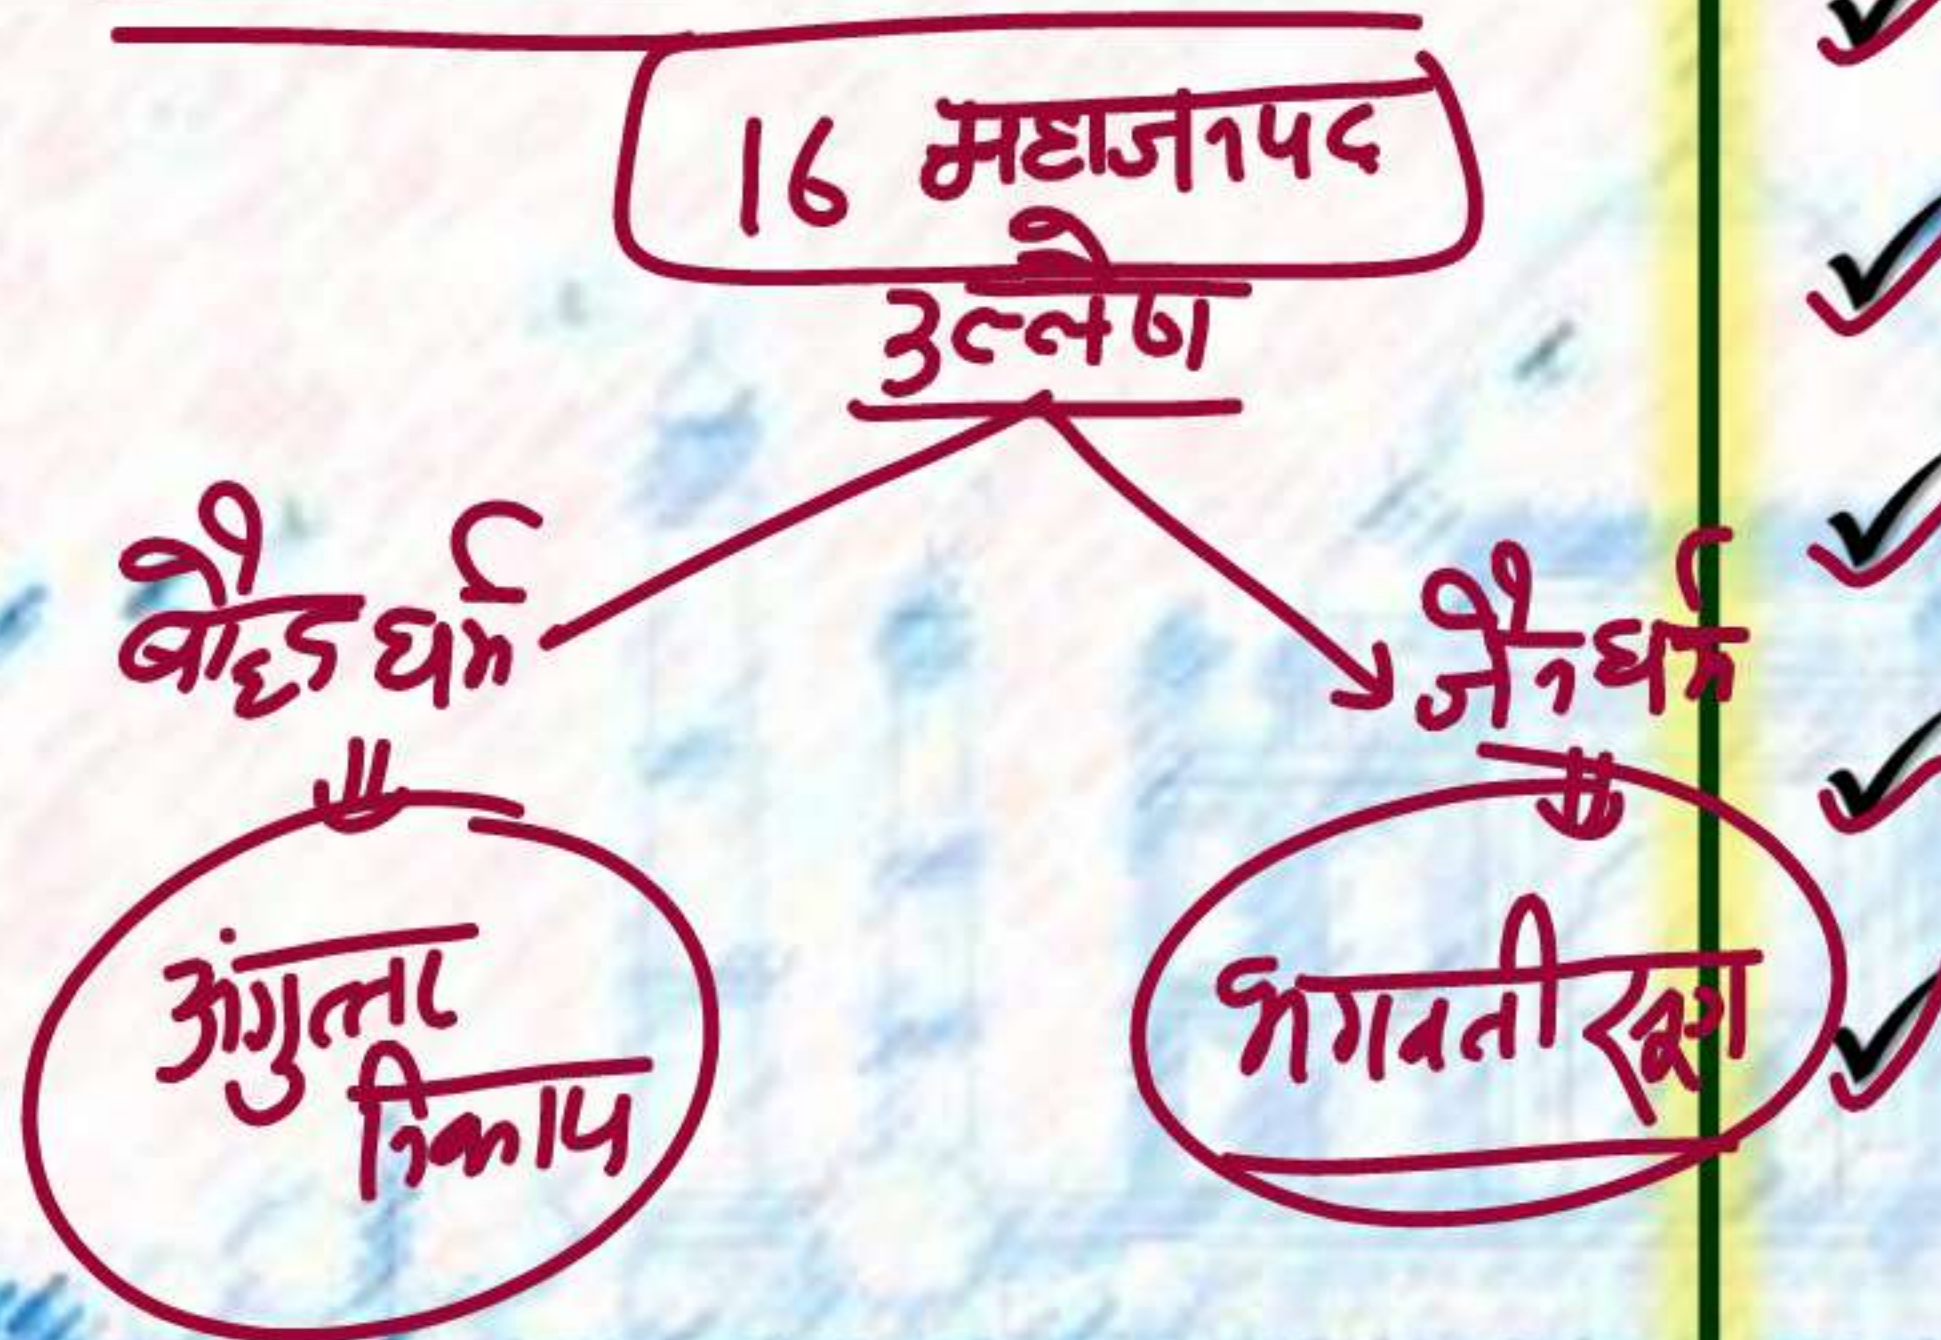 16 महाजनपद
उल्लेख
बौद्ध धर्म
जैन धर्म
अंगुत्तर
निकाय
भगवती सूत्र